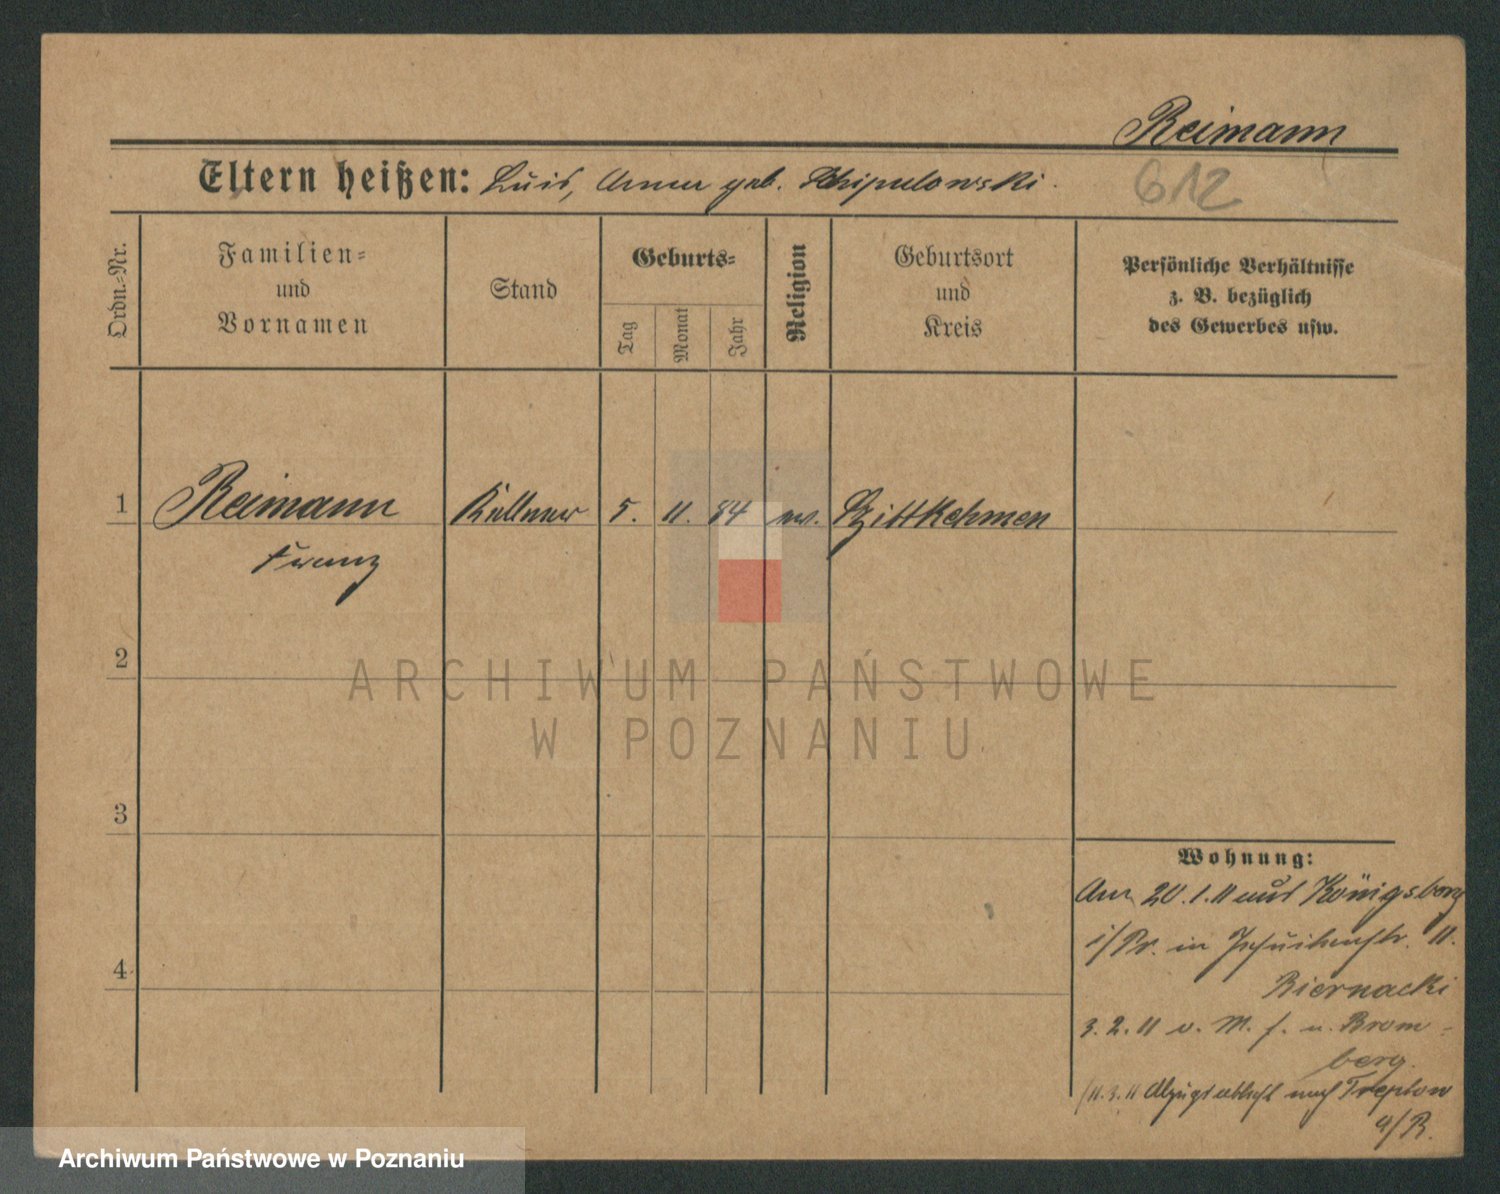 Reimann
Eltern heißen: Luis, Anna geb.
612
Ordn.-Nr.
Familien-
und
Vornamen
Stand
Geburts-
Tag
Monat
Jahr
Religion
Geburtsort
und
Kreis
Persönliche Verhältnisse
z. B. bezüglich
des Gewerbes usw.
1 Reimann Kellner 5. 11. 84 ev. Szittkehmen
Franz
2
3
4
ARCHIWUM PAŃSTWOWE
W POZNANIU
Wohnung:
Am 20.1.11 aus Königsberg
i/Pr. in Jesuitenstr. 11.
Biernacki
3.2.11 v. M. f. n. Brom-
berg.
11.3.11 nach Treptow
a/R.
Archiwum Państwowe w Poznaniu